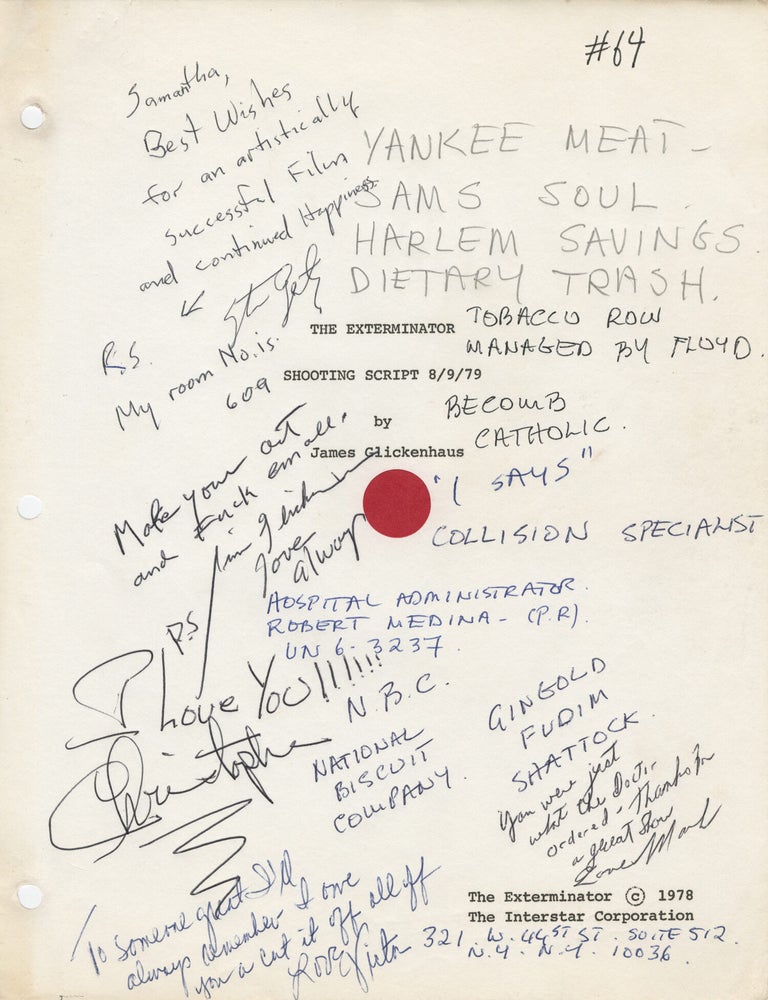 #64
Samantha,
Best Wishes
for an artistically
successful Film
and continued Happiness.
YANKEE MEAT-
SAMS SOUL.
HARLEM SAVINGS.
DIETARY TRASH.
R.S.
My room No. is.
609
THE EXTERMINATOR
TOBACCO ROW
MANAGED BY FLOYD.
SHOOTING SCRIPT 8/9/79
BECOMB
CATHOLIC.
by
James Glickenhaus
"I SAYS"
COLLISION SPECIALIST
Make your art
and Fuck em all.
Jim Glickenhaus
love
always
HOSPITAL ADMINISTRATOR.
ROBERT MEDINA - (P.R).
UN 6-3237.
P.S
I Love You!!!!!!!
Christopher
N.B.C.
NATIONAL
BISCUIT
COMPANY.
GINGOLD
FUDIM
SHATTOCK.
You were just
what the Doctor
ordered - Thanks for
a great show
Love Mark
To Someone great I'll
always remember I owe
you a cut it off all off
Love Victor
The Exterminator © 1978
The Interstar Corporation
321. W. 44ST ST. SUITE 512.
N.Y. N.Y. 10036.